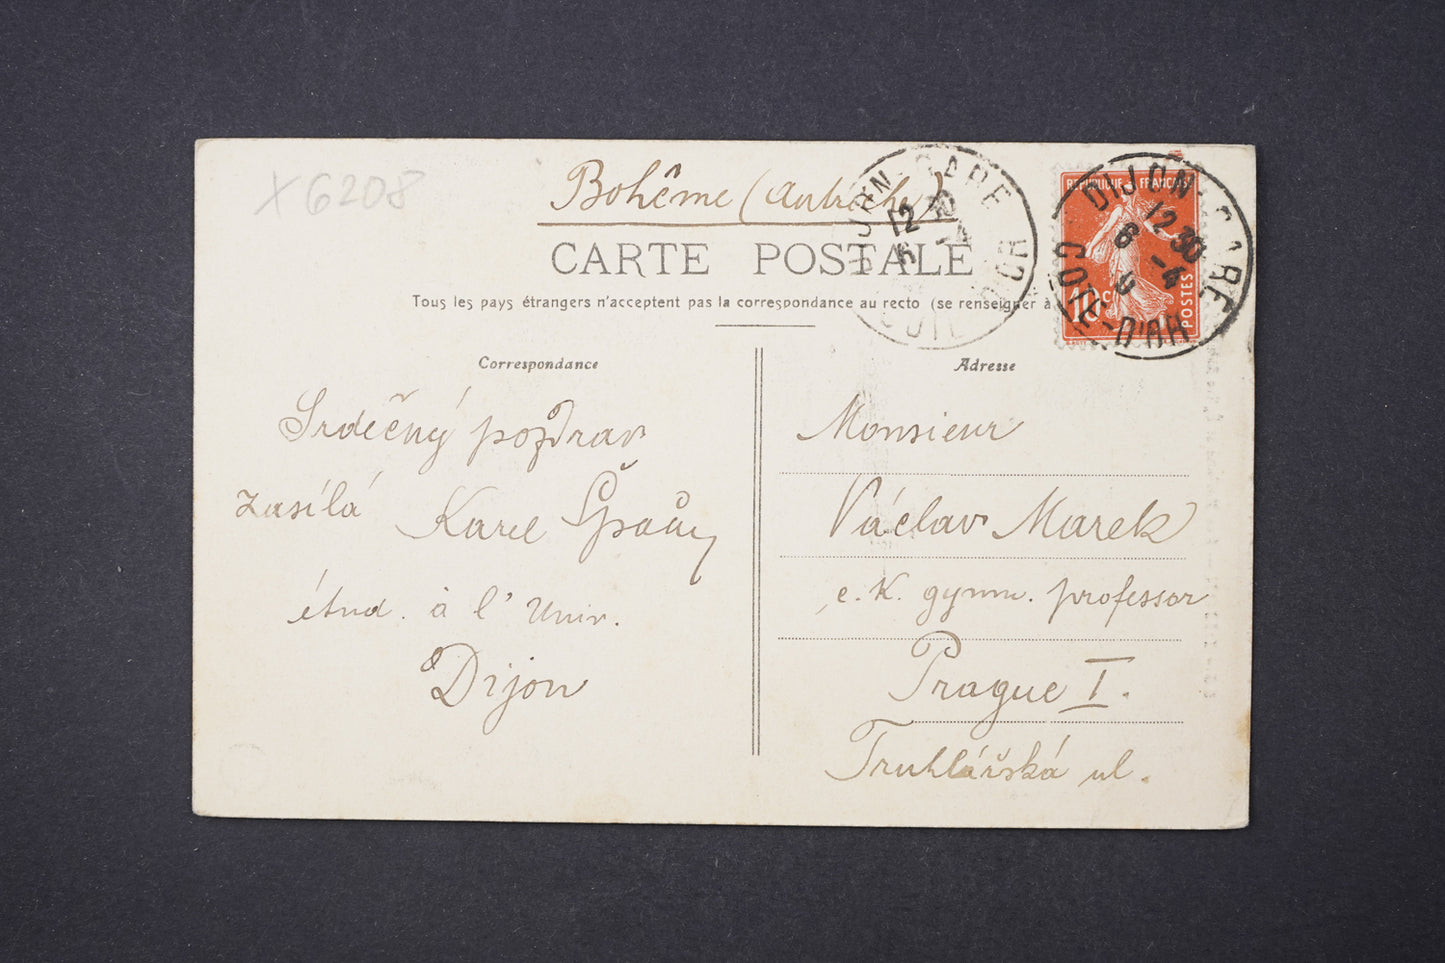 X6208
Bohême (Autriche)
CARTE POSTALE
Tous les pays étrangers n'acceptent pas la correspondance au recto (se renseigner à
Correspondance
Srdečný pozdrav
zasílá Karel
étud. à l' Univ.
Dijon
Adresse
Monsieur
Václav Marek
c. k. gymn. professor
Prague I.
Truhlářská ul.
RÉPUBLIQUE FRANÇAISE
10c
POSTES
DIJON-GARE
12 30
6 -4
CÔTE-D'OR
DIJON-GARE
12 30